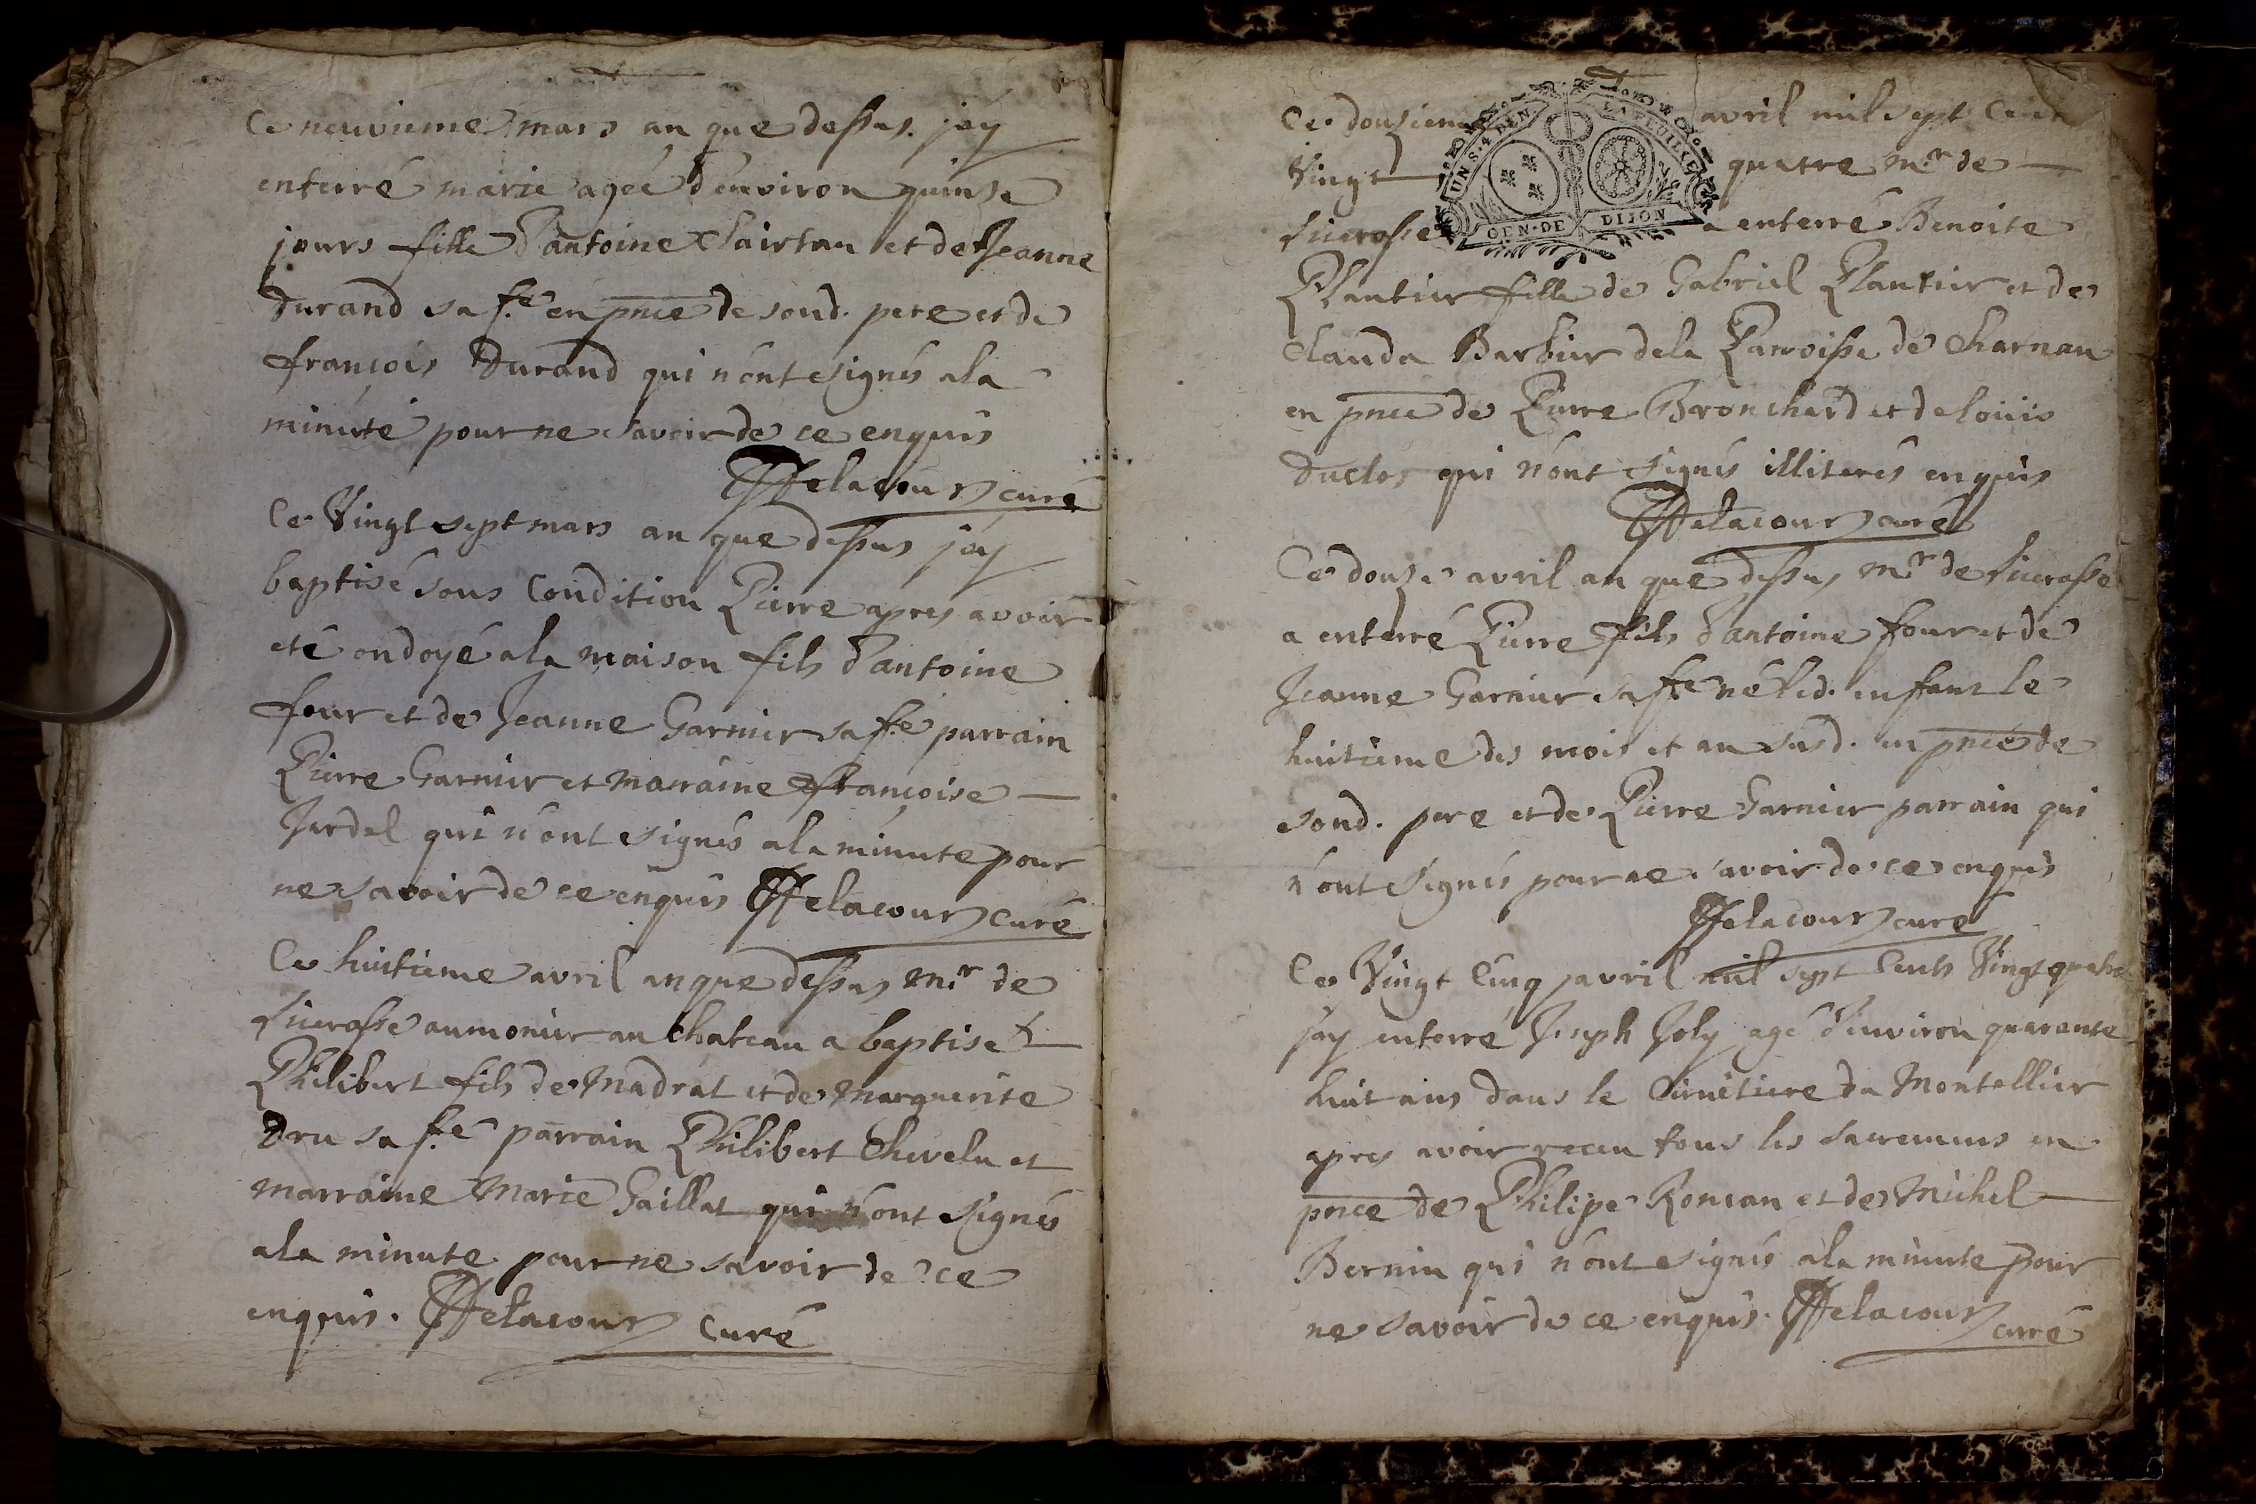 Ce neuvieme mars an que dessus jay
enterré marie agée d'environ quinse
jours fille d'antoine et de Jeanne
durand sa fe en pnce de sond. pere et de
françois Durand qui n'ont signés a la
minute pour ne savoir de ce enquis
Delacour curé
Ce Vingt sept mars an que dessus jay
baptisé sous Condition Pierre apres avoir
eté ondoyé a la maison fils d'antoine
four et de Jeanne Garnier sa fe parrain
Pierre Garnier et marraine françoise
Jardel qui n'ont signés a la minute pour
ne savoir de ce enquis Delacour curé
Ce huitieme avril an que dessus Mr de
aumonier au chateau a baptisé
Philibert fils de Madrat et de Marguerite
Dru sa fe parrain Philibert Chevelu et
marraine Marie Gaillat qui n'ont signés
a la minute pour ne savoir de ce
enquis. Delacour curé
Ce douzieme avril mil sept Cent
Vingt quatre Mr de
a enterré Benoite
Plantier fille de Gabriel Plantier et de
Clauda Barbier de la Parroisse de Charnau
en pnce de Pierre Bronchard et de loüis
duclos qui n'ont signés illiterés enquis
Delacour curé
Ce douze avril an que dessus Mr de
a enterré Pierre fils d'antoine four et de
Jeanne Garnier sa fe né led. enfant le
huitieme des mois et an susd. en pnce de
sond. pere et de Pierre Garnier parrain qui
n'ont signés pour ne savoir de ce enquis
Delacour curé
Ce Vingt Cinq avril mil sept Cents Vingt quatre
jay enterré Joseph Joly agé d'environ quarante
huit ans dans le Cimetiere du Montellier
apres avoir receu tous les sacremens en
pnce de Philipe Ronsan et de Michel
Bernin qui n'ont signés a la minute pour
ne savoir de ce enquis. Delacour
curé
UN S. 4 DEN LA FEUILLE
GEN · DE DIJON